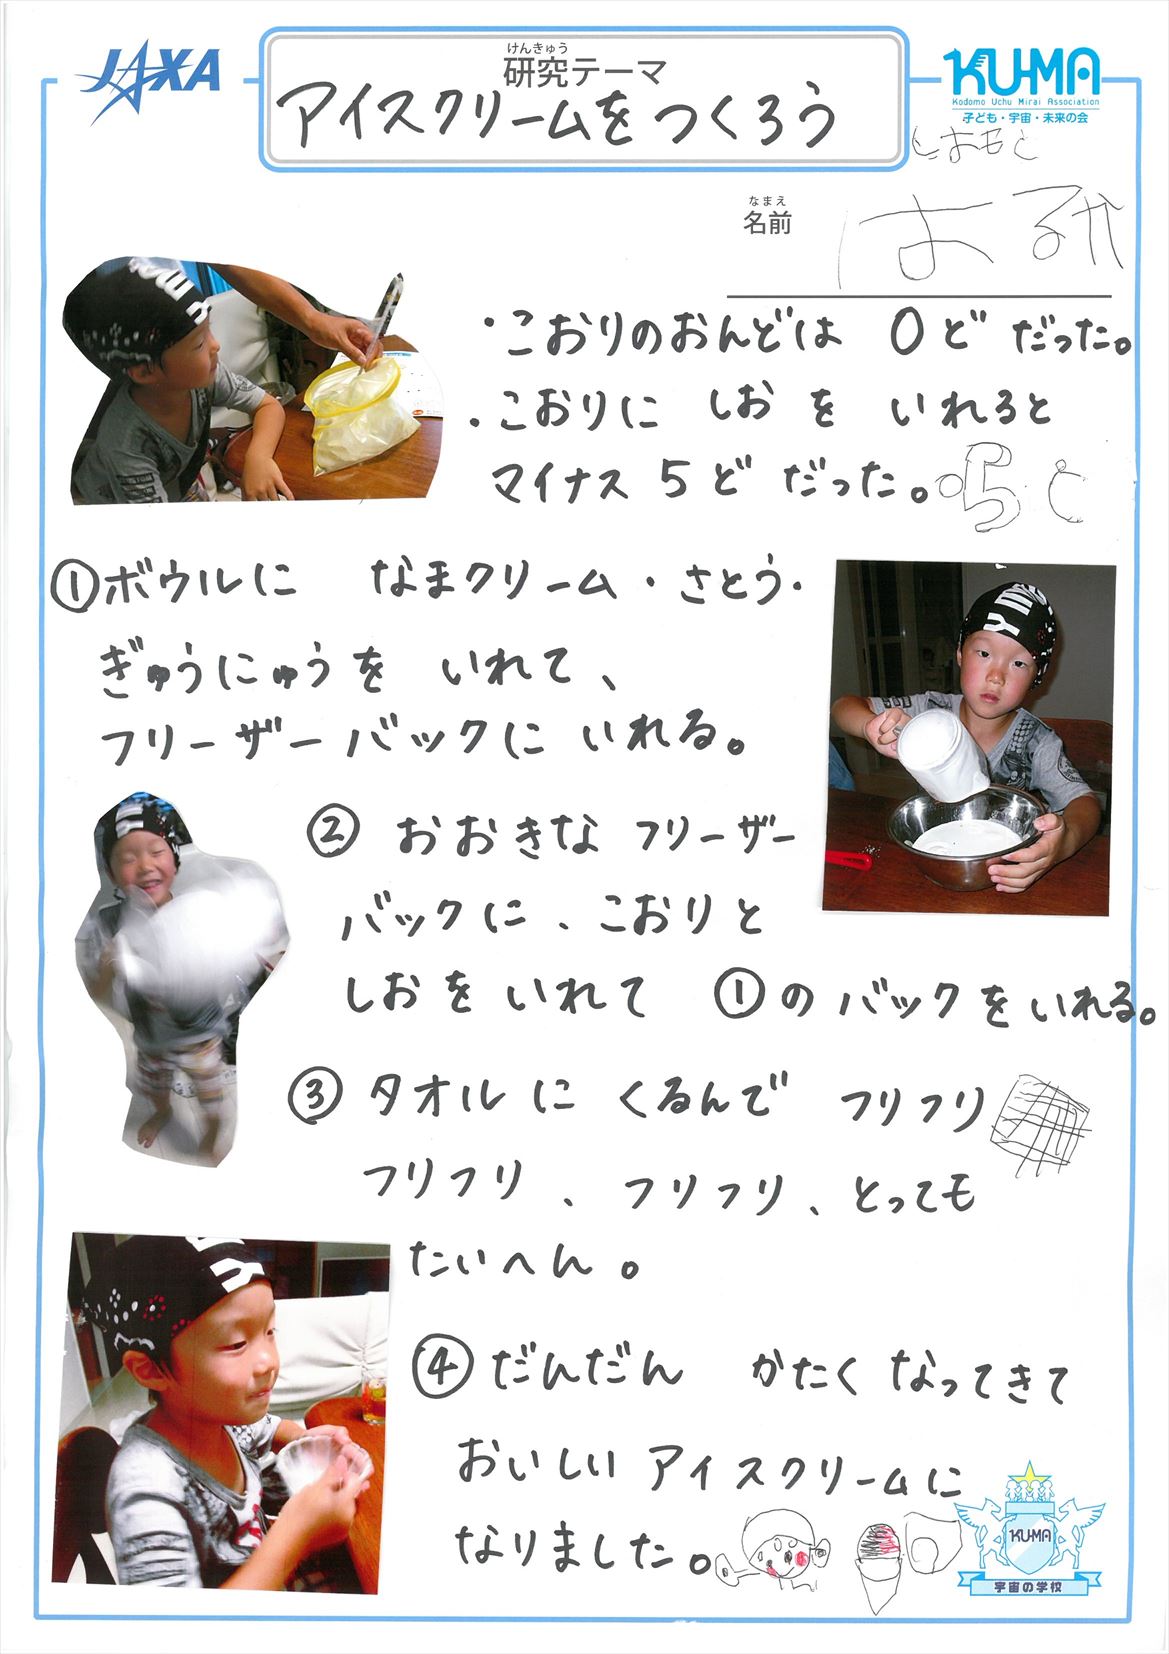 JAXA
けんきゅう
研究テーマ
アイスクリームをつくろう
KU-MA
Kodomo Uchu Mirai Association
子ども・宇宙・未来の会
なまえ
名前
・こおりのおんどは 0ど だった。
・こおりに しお を いれると
マイナス 5ど だった。
①ボウルに なまクリーム・さとう・
ぎゅうにゅうを いれて、
フリーザーバックに いれる。
② おおきな フリーザー
バックに、こおりと
しおを いれて ①のバックをいれる。
③ タオルに くるんで フリフリ
フリフリ、フリフリ、とっても
たいへん。
④ だんだん かたく なってきて
おいしい アイスクリームに
なりました。
KU-MA
宇宙の学校